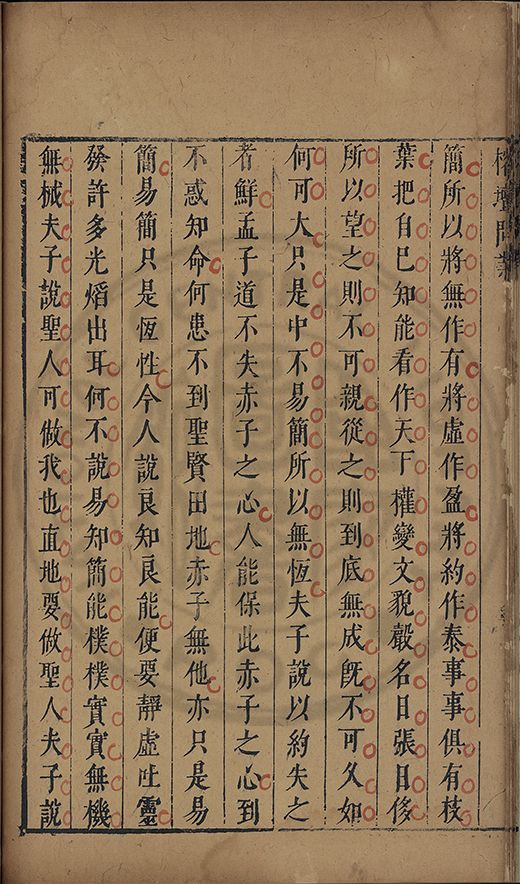 榕壇問業
簡所以將無作有將虛作盈將約作泰事事俱有枝
葉把自己知能看作天下權變文貌聲名日張日侈
所以望之則不可親從之則到底無成既不可久如
何可大只是中不易簡所以無恆夫子說以約失之
者鮮孟子道不失赤子之心人能保此赤子之心到
不惑知命何患不到聖賢田地赤子無他亦只是易
簡易簡只是恆性今人說良知良能便要靜虛吐靈
發許多光熖出耳何不說易知簡能樸樸實實無機
無械夫子說聖人可做我也直地要做聖人夫子說